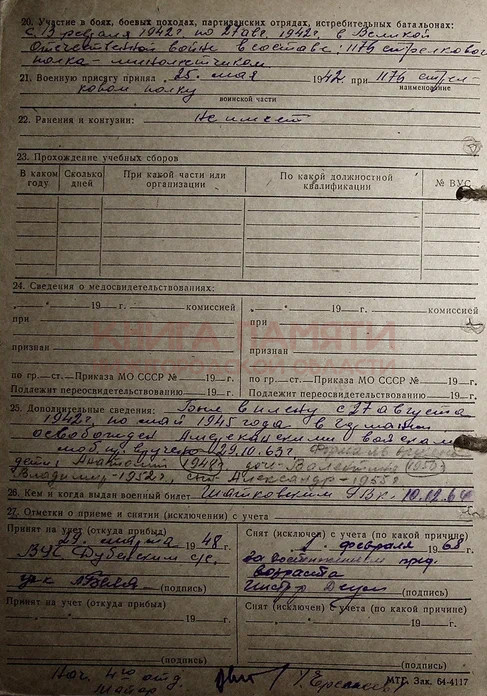 20. Участие в боях, боевых походах, партизанских отрядах, истребительных батальонах:
с 13 февраля 1942 г. по 27 авг. 1942 г. в Великой
Отечественной войне в составе 1179 стрелкового
полка – минометчиком
21. Военную присягу принял „25„ мая 1942 при 1179 стрел-
наименование
ковом полку
воинской части
22. Ранения и контузии: Не имеет
23. Прохождение учебных сборов
В каком году Сколько дней При какой части или организации По какой должностной квалификации № ВУС
24. Сведения о медосвидетельствованиях:
„ “ 19 г. комиссией „ “ 19 г. комиссией
при при
признан признан
по гр.—ст.—Приказа МО СССР № 19 г. по гр.—ст.—Приказа МО СССР № 19 г.
Подлежит переосвидетельствованию 19 г. Подлежит переосвидетельствованию 19 г.
КНИГА ПАМЯТИ
25. Дополнительные сведения: Был в плену с 27 августа
1942 г. по май 1945 года в Германии
освобожден Американскими войсками
29.10.63 г.
дети: Анатолий (1948), дочь Валентина (1950)
Владимир – 1952 г., Александр – 1955 г.
26. Кем и когда выдан военный билет Шатковским РВК 10.02.64
27. Отметки о приеме и снятии (исключении) с учета
Принят на учет (откуда прибыл) Снят (исключен) с учета (по какой причине)
„29„ марта 1948 г. февраля 1968 г.
ВУС Дубенским с/с за достижением пред.
возраста
(подпись) (подпись)
Принят на учет (откуда прибыл) Снят (исключен) с учета (по какой причине)
„ “ 19 г. „ “ 19 г.
(подпись) (подпись)
Нач. 4го отд. МТГ. Зак. 64-4117
Майор